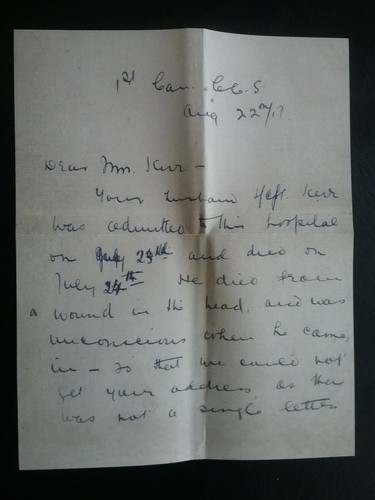 1st Can. C.C.S
Aug 22nd/17
Dear Mrs. Kerr –
Your husband Kerr
was admitted to this hospital
on July and died on
July 24th. He died from
a wound in the head, and was
unconscious when he came
in – so that we could not
get your address as there
was not a single letter